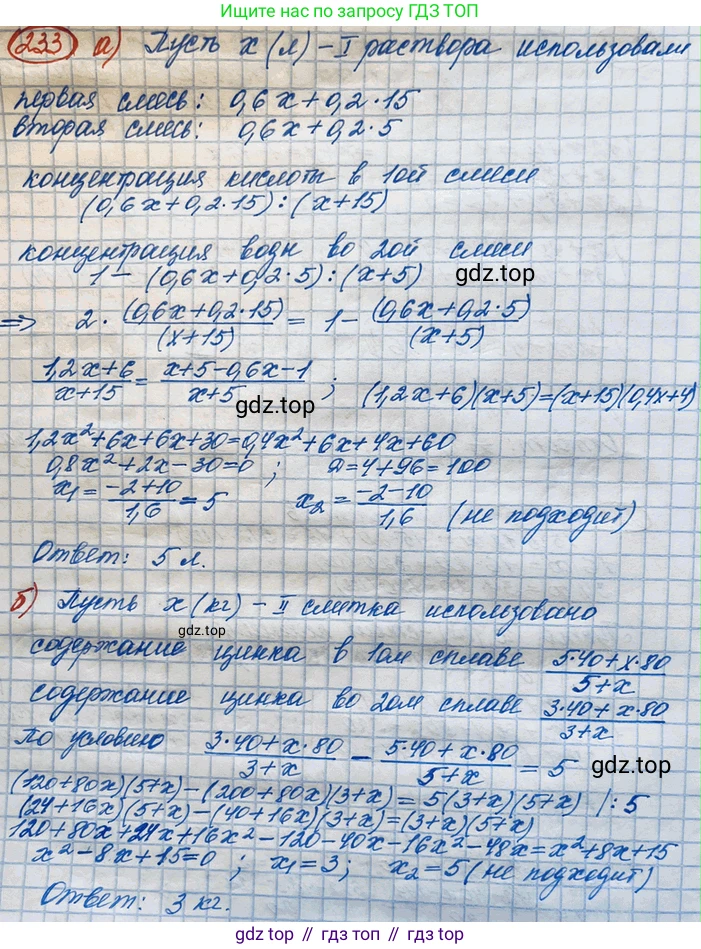 Ищите ответы по запросу ГДЗ ТОП
233 а) Пусть x (л) – I раствора использовали
первая смесь: 0,6x+0,2·15
вторая смесь: 0,6x+0,2·5
концентрация кислоты в 1ой смеси
(0,6x+0,2·15):(x+15)
концентрация воды во 2ой смеси
1 – (0,6x+0,2·5):(x+5) gdz.top
=> 2·(0,6x+0,2·15)/(x+15) = 1 – (0,6x+0,2·5)/(x+5)
(1,2x+6)/(x+15) = (x+5-0,6x-1)/(x+5) ; (1,2x+6)(x+5)=(x+15)(0,4x+4)
gdz.top
1,2x²+6x+6x+30=0,4x²+6x+4x+60
0,8x²+2x-30=0 ; D=4+96=100
x₁=(-2+10)/1,6=5 x₂=(-2-10)/1,6 (не подходит)
Ответ: 5 л.
б) Пусть x (кг) – II слитка использовано
gdz.top
содержание цинка в 1ом сплаве (5·40+x·80)/(5+x)
содержание цинка во 2ом сплаве (3·40+x·80)/(3+x)
По условию (3·40+x·80)/(3+x) – (5·40+x·80)/(5+x) = 5 gdz.top
(120+80x)(5+x)-(200+80x)(3+x)=5(3+x)(5+x) /:5
(24+16x)(5+x)-(40+16x)(3+x)=(3+x)(5+x)
120+80x+24x+16x²-120-40x-16x²-48x=x²+8x+15
x²-8x+15=0 ; x₁=3; x₂=5 (не подходит)
Ответ: 3 кг.
gdz.top // гдз.топ // гдз.top